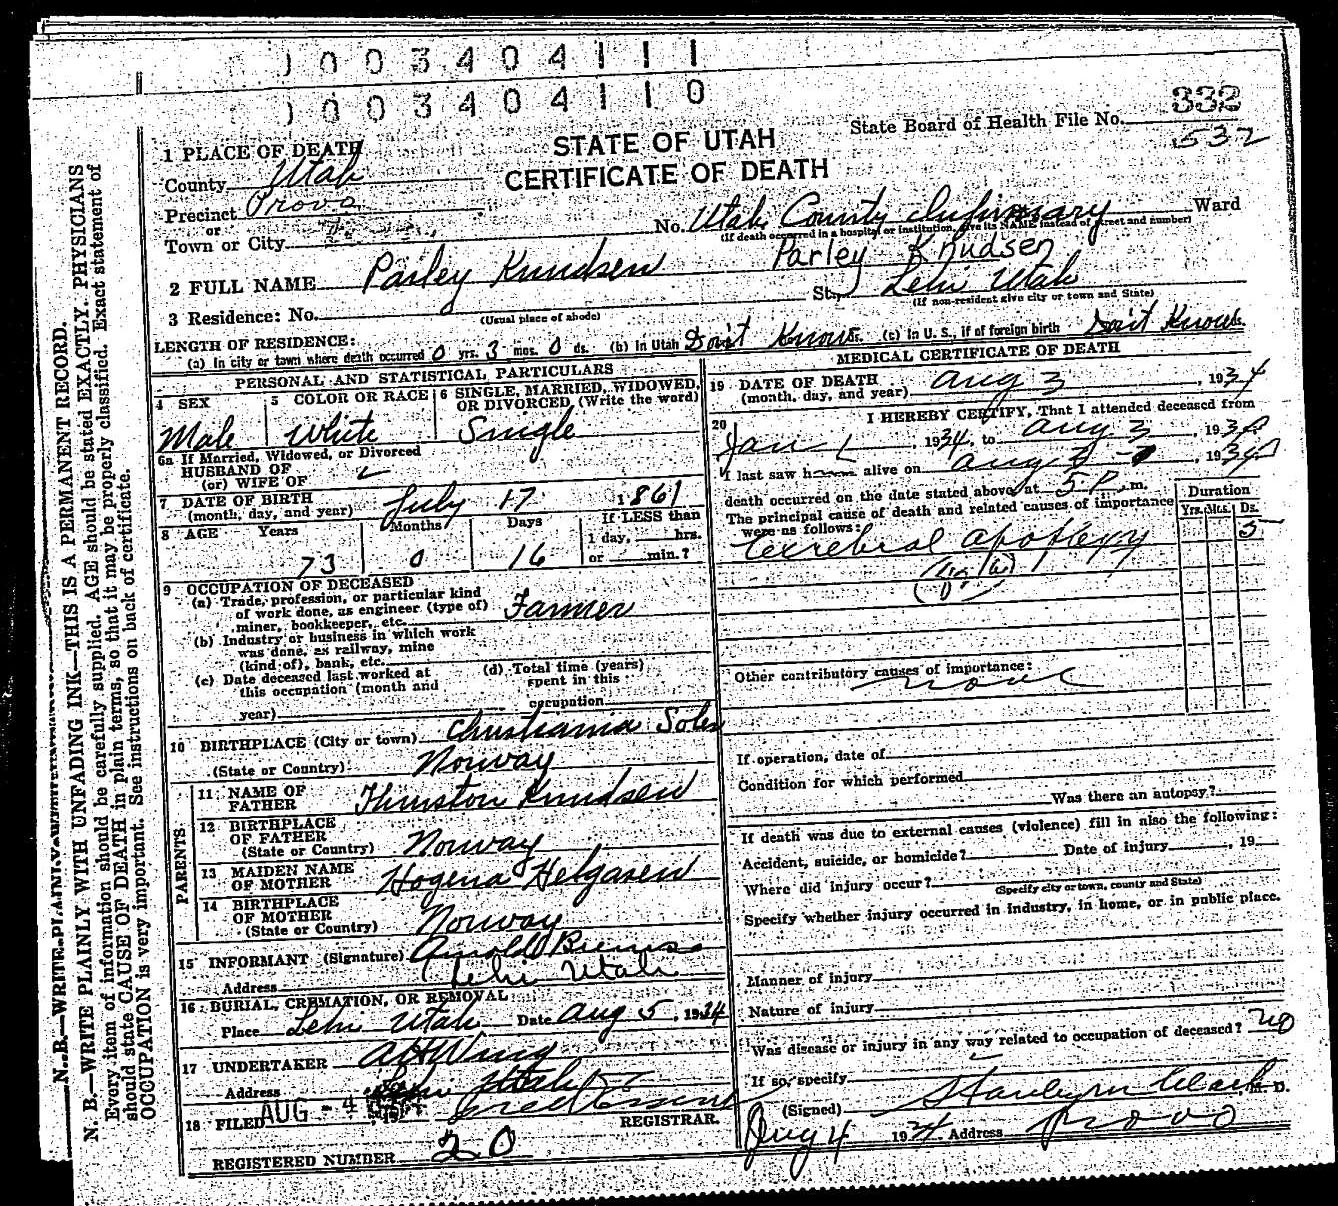 0 0 3 4 0 4 1 1 1
0 0 3 4 0 4 1 1 0
332
State Board of Health File No.
532
STATE OF UTAH
CERTIFICATE OF DEATH
1 PLACE OF DEATH
County Utah
Precinct Provo
or
Town or City
No. Utah County Infirmary Ward
(If death occurred in a hospital or institution, give its NAME instead of street and number)
Parley Knudsen
2 FULL NAME Parley Knudsen
3 Residence: No. St. Lehi Utah
(Usual place of abode) (If non-resident give city or town and State)
LENGTH OF RESIDENCE:
(a) In city or town where death occurred 0 yrs. 3 mos. 0 ds. (b) In Utah Don't Know (c) In U. S., if of foreign birth Don't Know
PERSONAL AND STATISTICAL PARTICULARS
4 SEX Male
5 COLOR OR RACE White
6 SINGLE, MARRIED, WIDOWED, OR DIVORCED (Write the word) Single
6a If Married, Widowed, or Divorced
HUSBAND OF
(or) WIFE OF
7 DATE OF BIRTH
(month, day, and year) July 17 1861
8 AGE Years Months Days If LESS than
1 day, hrs.
73 0 16 or min.?
9 OCCUPATION OF DECEASED
(a) Trade, profession, or particular kind
of work done, as engineer (type of)
miner, bookkeeper, etc. Farmer
(b) Industry or business in which work
was done, as railway, mine
(kind of), bank, etc.
(c) Date deceased last worked at
this occupation (month and
year)
(d) Total time (years)
spent in this
occupation
10 BIRTHPLACE (City or town) Christiania
(State or Country) Norway
PARENTS
11 NAME OF
FATHER Thurston Knudsen
12 BIRTHPLACE
OF FATHER
(State or Country) Norway
13 MAIDEN NAME
OF MOTHER Hogena Helgasen
14 BIRTHPLACE
OF MOTHER
(State or Country) Norway
15 INFORMANT (Signature) Arnold
Address Lehi Utah
16 BURIAL, CREMATION, OR REMOVAL
Place Lehi Utah Date Aug 5, 1934
17 UNDERTAKER A H Wing
Address Lehi Utah
18 FILED AUG - 4
REGISTRAR.
REGISTERED NUMBER 20
MEDICAL CERTIFICATE OF DEATH
19 DATE OF DEATH
(month, day, and year) Aug 3, 1934
20 I HEREBY CERTIFY, That I attended deceased from
Jan 1, 1934, to Aug 3, 1934
I last saw h alive on Aug 3, 1934
death occurred on the date stated above, at 5 P. m.
The principal cause of death and related causes of importance
were as follows:
Duration
Yrs. Mos. Ds.
Cerebral apoplexy 5
Other contributory causes of importance:
none
If operation, date of
Condition for which performed
Was there an autopsy?
If death was due to external causes (violence) fill in also the following:
Accident, suicide, or homicide? Date of injury , 19
Where did injury occur?
(Specify city or town, county and State)
Specify whether injury occurred in industry, in home, or in public place.
Manner of injury
Nature of injury
Was disease or injury in any way related to occupation of deceased? no
If so, specify
(Signed) Stanley M Clark M. D.
Aug 4 1934 Address Provo
N. B.—WRITE PLAINLY WITH UNFADING INK—THIS IS A PERMANENT RECORD.
Every item of information should be carefully supplied. AGE should be stated EXACTLY. PHYSICIANS
should state CAUSE OF DEATH in plain terms, so that it may be properly classified. Exact statement of
OCCUPATION is very important. See instructions on back of certificate.